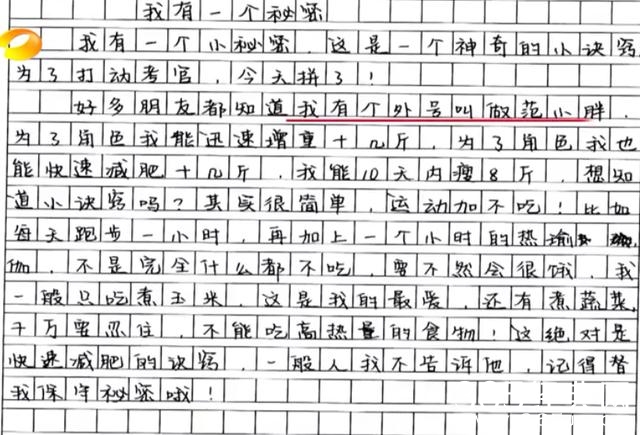 我有一个秘密
我有一个小秘密，这是一个神奇的小诀窍
为了打动考官，今天拼了！
好多朋友都知道我有个外号叫做范小胖，
为了角色我能迅速增重十几斤，为了角色我也
能快速减肥十几斤，我能10天内瘦8斤，想知
道小诀窍吗？其实很简单，运动加不吃！比如
每天跑步一小时，再加上一个小时的热瑜
伽，不是完全什么都不吃，要不然会很饿，我
一般只吃煮玉米，这是我的最爱，还有煮蔬菜，
千万要忍住，不能吃高热量的食物！这绝对是
快速减肥的诀窍，一般人我不告诉他，记得替
我保守秘密哦！